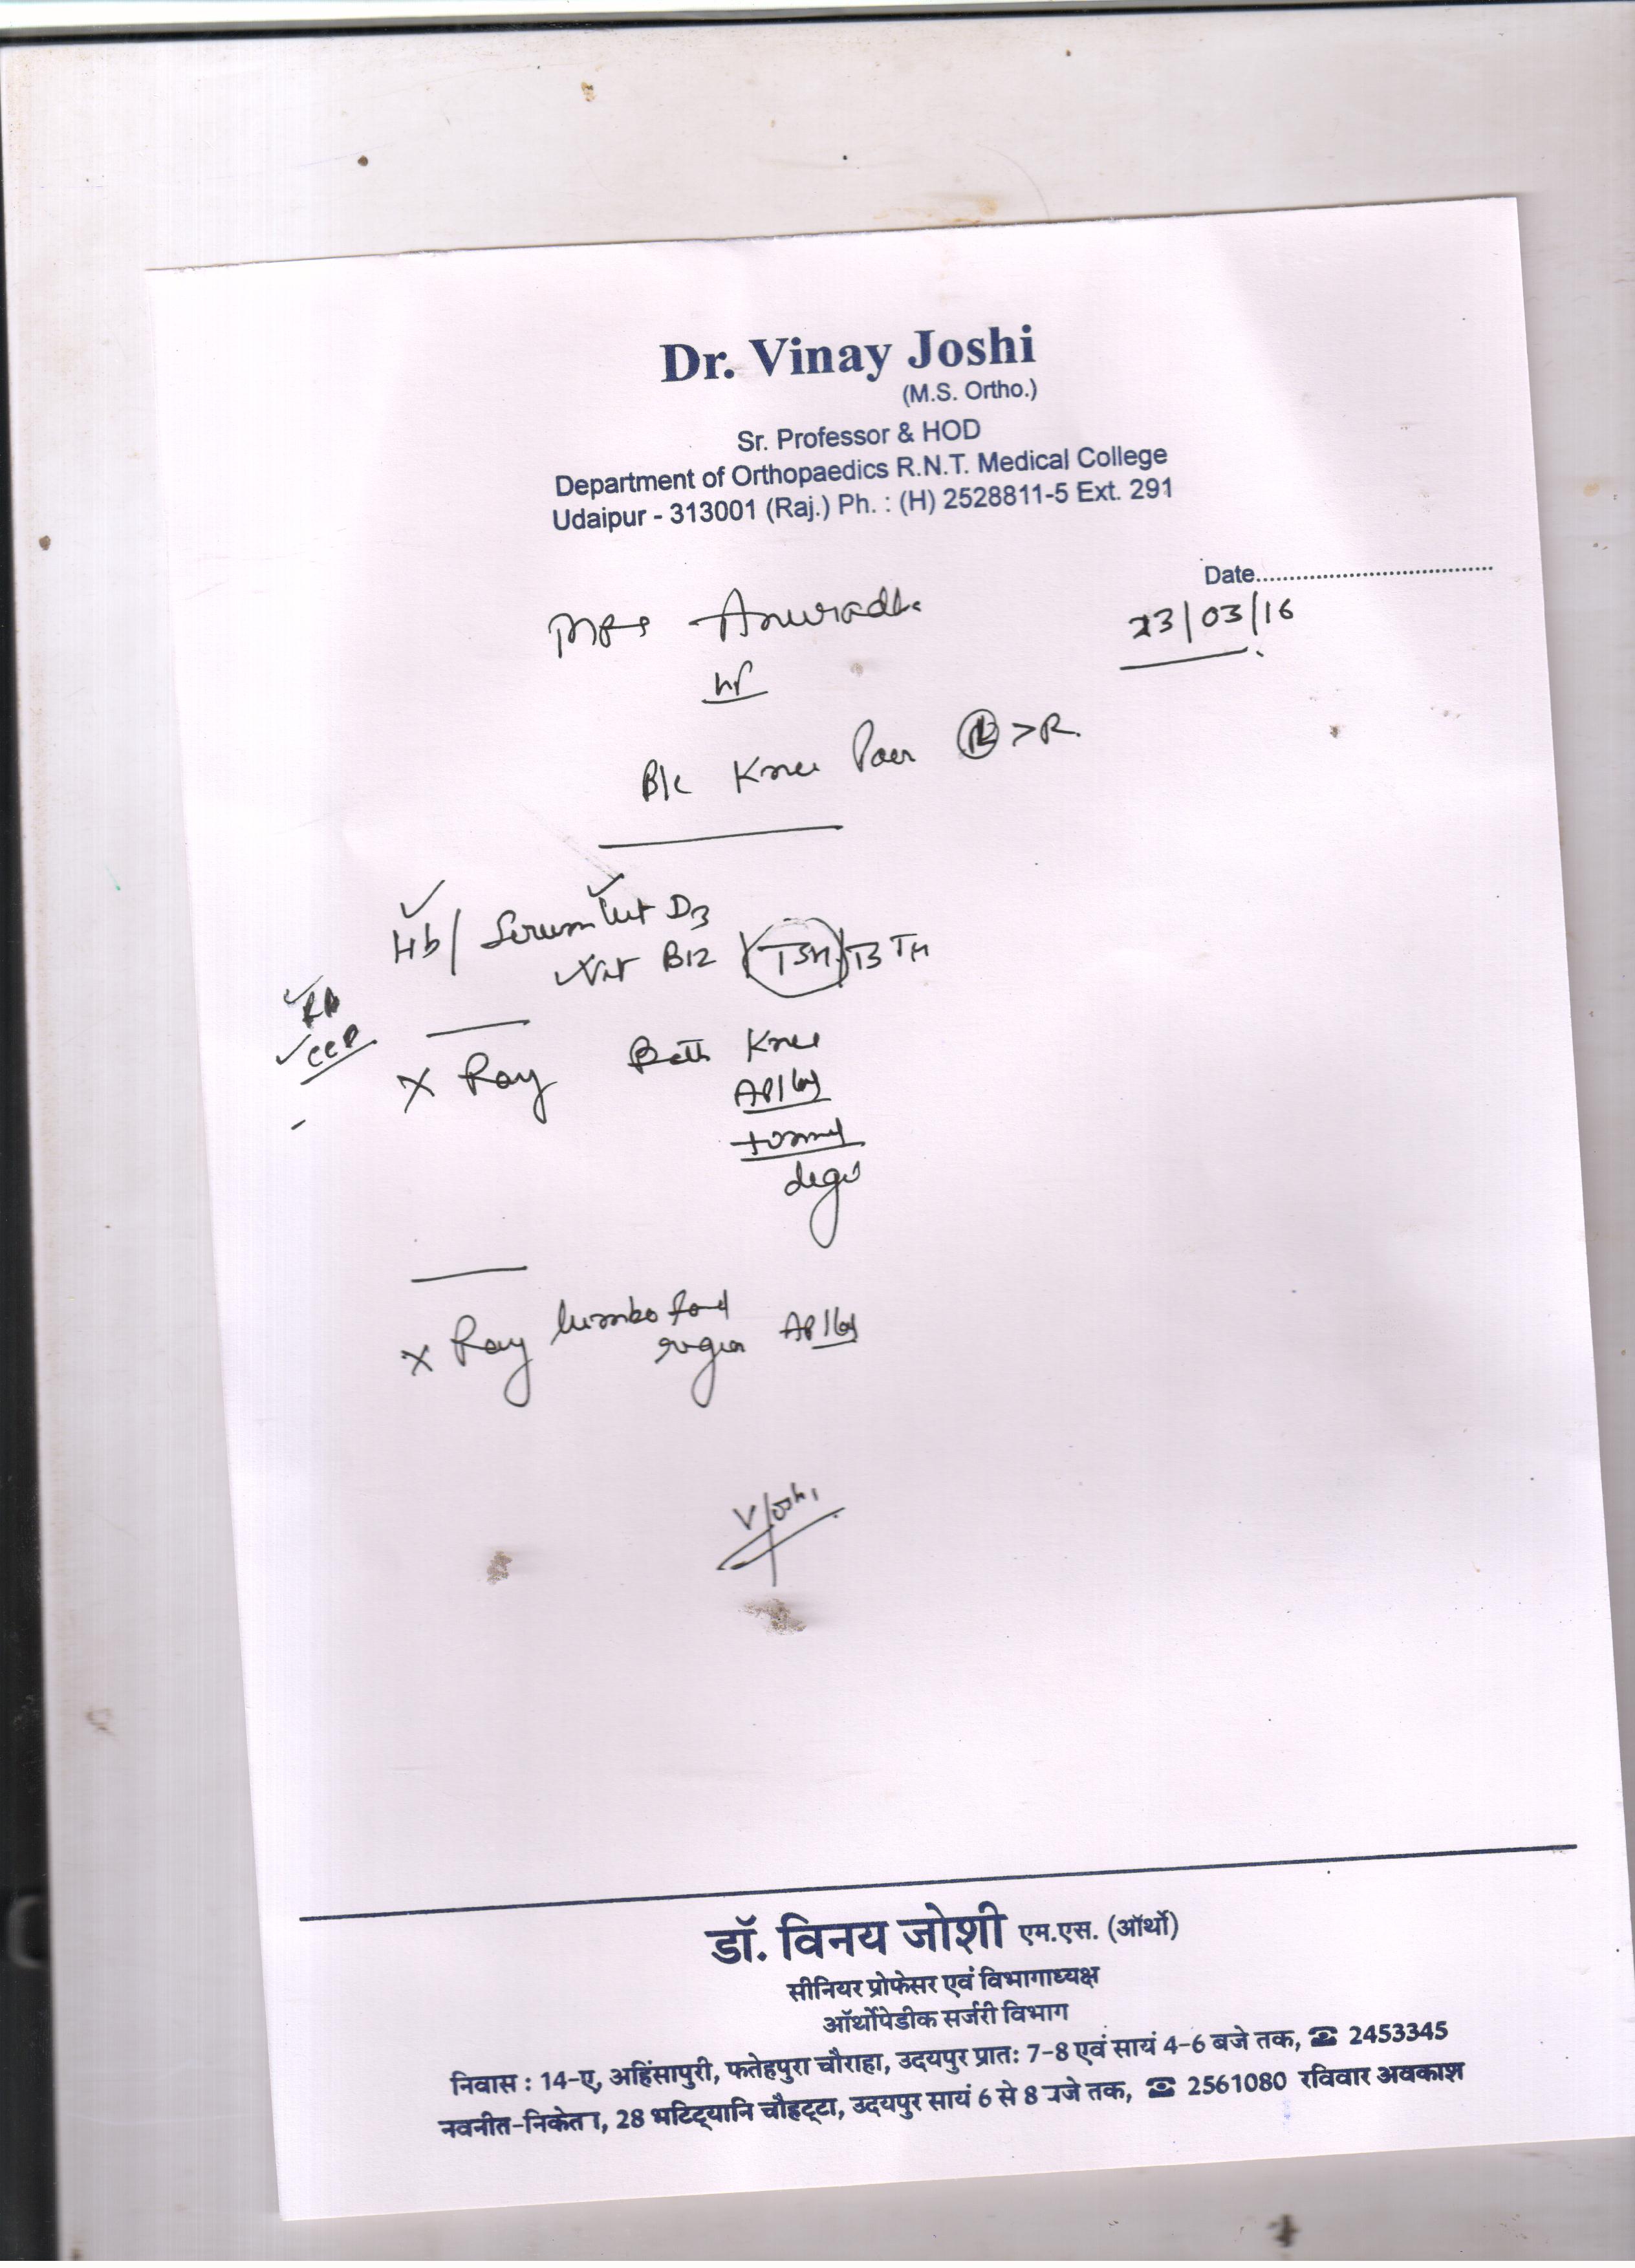 Dr. Vinay Joshi
(M.S. Ortho.)
Sr. Professor & HOD
Department of Orthopaedics R.N.T. Medical College
Udaipur - 313001 (Raj.) Ph. : (H) 2528811-5 Ext. 291
Date
Mrs Anuradha
23/03/16
Knee Pain > R.
Hb/ Serum Vit D3
Vit B12 TSH T3 T4
X Ray Both Knee
AP/lat
X Ray lumbo
region AP/lat
V Joshi
डॉ. विनय जोशी एम.एस. (ऑर्थो)
सीनियर प्रोफेसर एवं विभागाध्यक्ष
ऑर्थोपेडीक सर्जरी विभाग
निवास : 14-ए, अहिंसापुरी, फतेहपुरा चौराहा, उदयपुर प्रातः 7-8 एवं सायं 4-6 बजे तक, ☎ 2453345
नवनीत-निकेतन, 28 भटिट्यानि चौहट्टा, उदयपुर सायं 6 से 8 बजे तक, ☎ 2561080 रविवार अवकाश